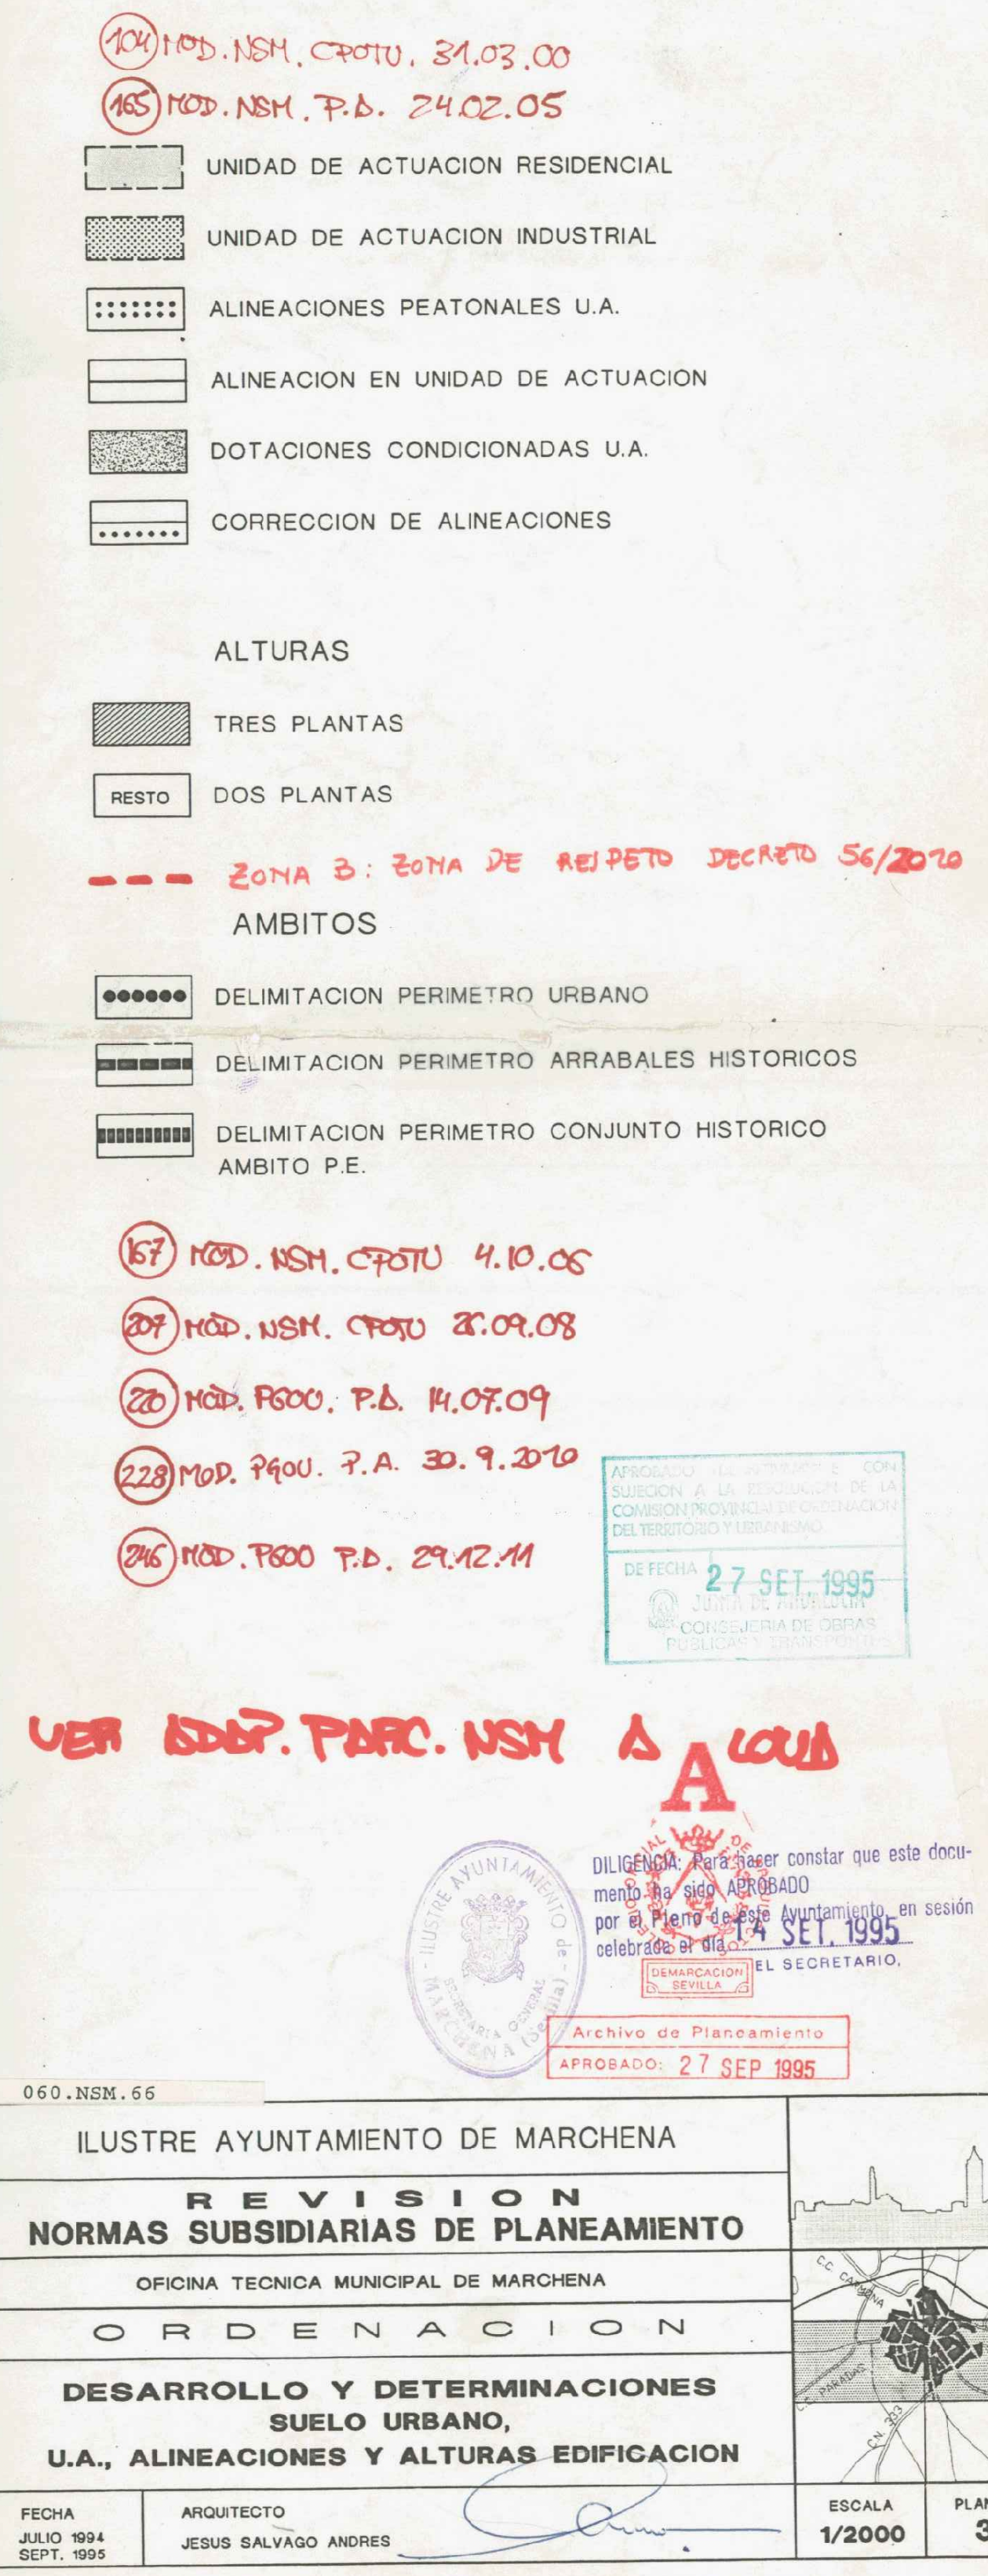 104 MOD. NSM. CPOTU. 31.03.00
165 MOD. NSM. P.A. 24.02.05
UNIDAD DE ACTUACION RESIDENCIAL
UNIDAD DE ACTUACION INDUSTRIAL
ALINEACIONES PEATONALES U.A.
ALINEACION EN UNIDAD DE ACTUACION
DOTACIONES CONDICIONADAS U.A.
CORRECCION DE ALINEACIONES
ALTURAS
TRES PLANTAS
RESTO DOS PLANTAS
ZONA B: ZONA DE RESPETO DECRETO 56/2020
AMBITOS
DELIMITACION PERIMETRO URBANO
DELIMITACION PERIMETRO ARRABALES HISTORICOS
DELIMITACION PERIMETRO CONJUNTO HISTORICO
AMBITO P.E.
MOD. NSM. CPOTU 4.10.06
207 MOD. NSM. CPOTU .09.08
220 MOD. PGOU. P.A. 14.07.09
228 MOD. PGOU. P.A. 30.9.2010
246 MOD. PGOU P.A. 29.12.11
APROBADO CON
SUJECION A LA RESOLUCION DE LA
COMISION PROVINCIAL DE ORDENACION
DEL TERRITORIO Y URBANISMO
DE FECHA 27 SET. 1995
JUNTA DE ANDALUCIA
CONSEJERIA DE OBRAS
PUBLICAS Y TRANSPORTES
VER ADAP. PARC. NSM A LOUA
A
ILUSTRE AYUNTAMIENTO de MARCHENA (Sevilla)
SECRETARIA GENERAL
DILIGENCIA: Para hacer constar que este docu-
mento ha sido APROBADO
por el Pleno de este Ayuntamiento, en sesión
celebrada el día 14 SET. 1995
EL SECRETARIO,
DEMARCACION
SEVILLA
Archivo de Planeamiento
APROBADO: 27 SEP 1995
060.NSM.66
ILUSTRE AYUNTAMIENTO DE MARCHENA
REVISION
NORMAS SUBSIDIARIAS DE PLANEAMIENTO
OFICINA TECNICA MUNICIPAL DE MARCHENA
ORDENACION
C.C. CARMONA
C.C. PARADAS
C.N. 333
DESARROLLO Y DETERMINACIONES
SUELO URBANO,
U.A., ALINEACIONES Y ALTURAS EDIFICACION
FECHA
JULIO 1994
SEPT. 1995
ARQUITECTO
JESUS SALVAGO ANDRES
ESCALA
1/2000
PLAN
3